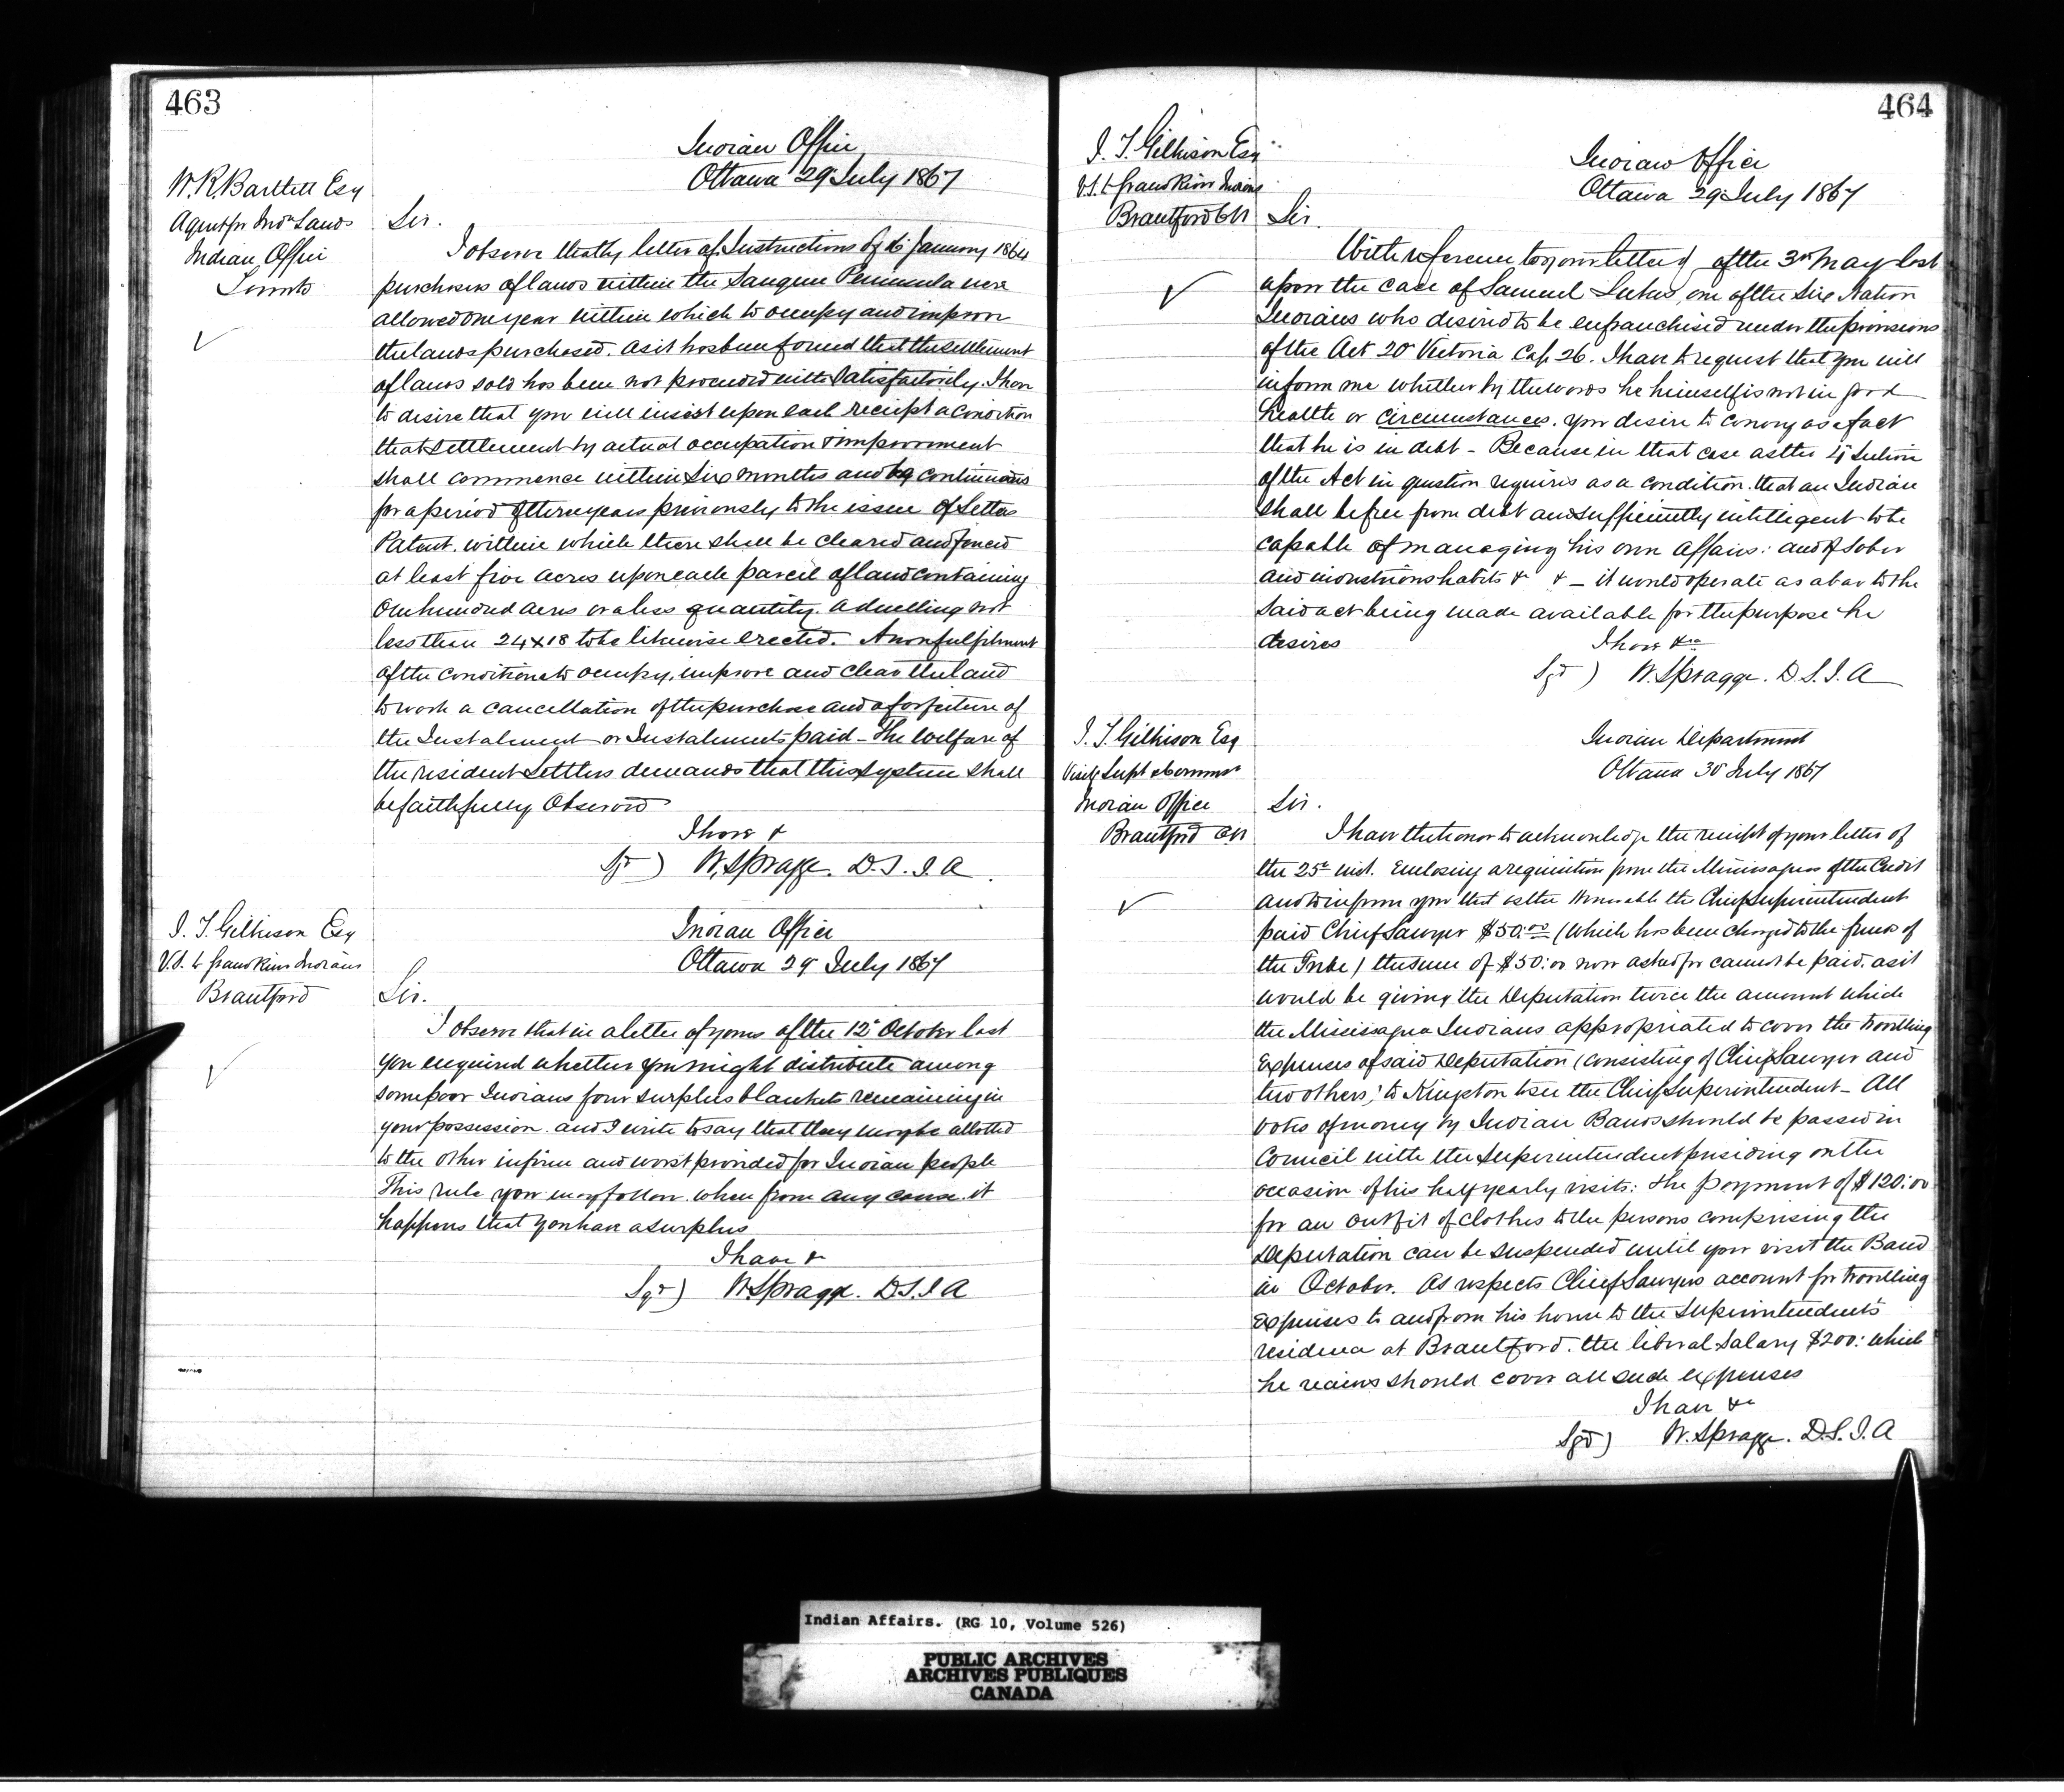 463
Indian Office
Ottawa 29 July 1867
W. R. Bartlett Esq
Agent for Indn Lands
Indian Office
Toronto
Sir.
I observe that by letter of Instructions of 16 January 1864
purchasers of lands within the Saugeen Peninsula were
allowed one year within which to occupy and improve
the lands purchased. As it has been found that the settlement
of lands sold has been not proceeded with satisfactorily. I have
to desire that you will insist upon each receipt a condition
that settlement by actual occupation & improvement
shall commence within Six months and be continuous
for a period of three years previously to the issue of Letters
Patent. within which there shall be cleared and fenced
at least five acres upon each parcel of land containing
One hundred acres or a less quantity. A dwelling not
less than 24 x 18 to be likewise erected. A nonfulfilment
of the conditions to occupy, improve and clear the land
to work a cancellation of the purchase and a forfeiture of
the Instalment or Instalments paid - The welfare of
the resident Settlers demands that this system shall
be faithfully Observed
I have &
Sgd) W. Spragge. D. S. I. A.
Indian Office
Ottawa 29 July 1867
J. T. Gilkison Esq
V.S. to Grand River Indians
Brantford
Sir.
I observe that in a letter of yours of the 12th October last
you enquired whether you might distribute among
some poor Indians four surplus blankets remaining in
your possession. and I write to say that they may be allotted
to the other infirm and worst provided for Indian people
This rule you may follow when from any cause it
happens that you have a surplus
I have &
Sgd) W. Spragge. D. S. I. A
464
J. T. Gilkison Esq
V.S. to Grand River Indians
Brantford CW
Indian Office
Ottawa 29 July 1867
Sir.
With reference to your letter of the 3rd May last
upon the case of Samuel Lukes, one of the Six Nation
Indians who desired to be enfranchised under the provisions
of the Act 20 Victoria Cap. 26. I have to request that you will
inform me whether by the words he himself is not in good
health or circumstances. you desire to convey as a fact
that he is in debt - Because in that case as the 4th Section
of the Act in question requires as a condition. that an Indian
shall be free from debt and sufficiently intelligent to be
capable of managing his own Affairs: and of sober
and industrious habits & & - it would operate as a bar to the
said act being made available for the purpose he
desires
I have &ca
Sgd) W. Spragge. D. S. I. A
J. T. Gilkison Esq
Visitg Supt & Commr
Indian Office
Brantford CW
Indian Department
Ottawa 30 July 1867
Sir.
I have the honor to acknowledge the receipt of your letter of
the 25th inst. Enclosing a requisition from the Mississaguas of the Credit
and to inform you that as the Honorable the Chief Superintendent
paid Chief Sawyer $50.00 (which has been charged to the funds of
the Tribe) the sum of $50:00 now asked for cannot be paid. as it
would be giving the Deputation twice the amount which
the Mississagua Indians appropriated to cover the travelling
Expenses of said Deputation (consisting of Chief Sawyer and
two others,) to Kingston to see the Chief Superintendent - All
votes of money by Indian Bands should be passed in
Council with the Superintendent presiding on the
occasion of his half yearly visits: the payment of $120:00
for an outfit of clothes to the persons comprising the
Deputation can be suspended until your visit the Band
in October. As respects Chief Sawyers account for travelling
expenses to and from his home to the Superintendent's
residence at Brantford. the liberal Salary $200: which
he receives should cover all such expenses
I have &c
Sgd) W. Spragge. D. S. I. A
Indian Affairs. (RG 10, Volume 526)
PUBLIC ARCHIVES
ARCHIVES PUBLIQUES
CANADA